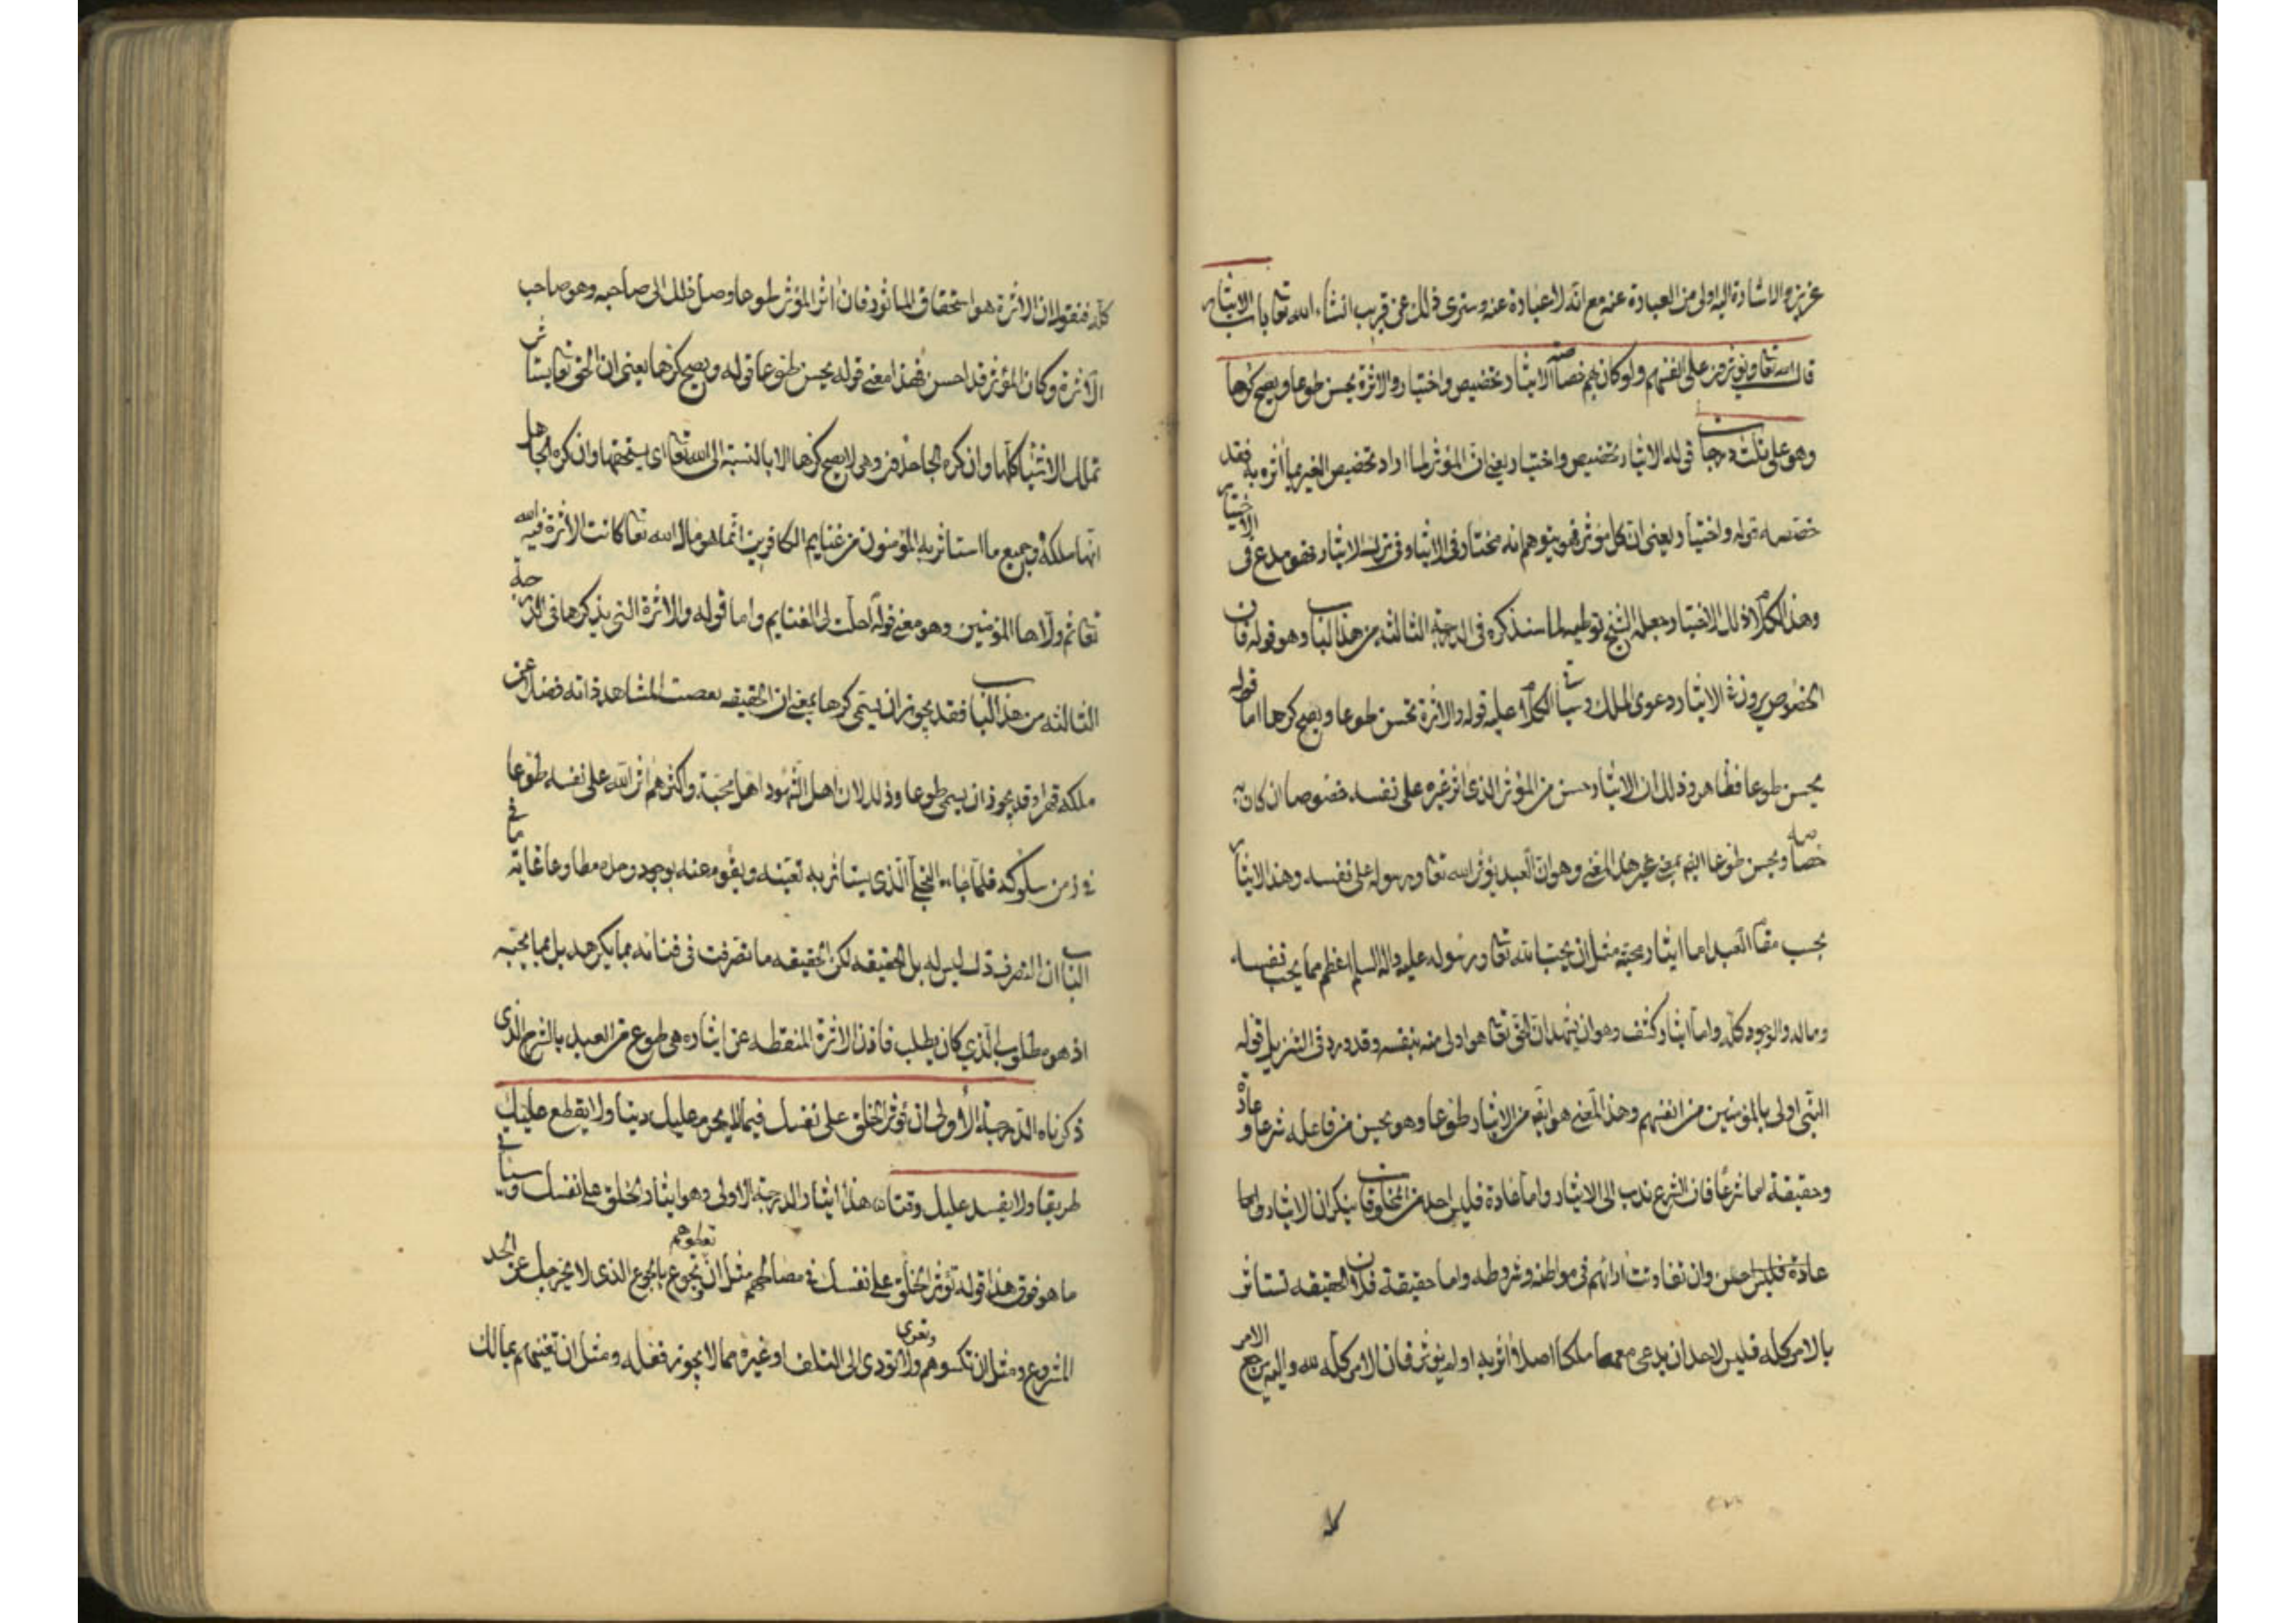 عزيز والاشارة اليه اولى من العبارة عنه مع انه لا عبارة عنه وسترى ذلك عن قريب انشاء الله تعا باب الايثار
قال الله تعا ويوثرون على انفسهم ولو كان بهم خصاصة الايثار تخصيص واختيار والاثرة يحسن طوعا ويصح كرها
وهو على ثلث درجات قوله الايثار تخصيص واختيار يعنى ان المؤثر لما اراد تخصيص الغير بما اثره به فقد
خصصه قوله واختيار يعنى ان كل مؤثر فهو يتوهم انه مختار فى الايثار وفى ترك الايثار فهو مدع فى الاختيار
وهذا الكلام لاذلال الاختيار وجعله الشيخ توطية لما سنذكره فى الدرجة الثالثة من هذا الباب وهو قوله فان
الخوض يروزنة الايثار ودعوى الملك وسياتى الكلام عليه قوله والاثرة تحسن طوعا ويصح كرها اما قوله
يحسن طوعا فظاهر وذلك ان الايثار حسن من المؤثر الذى اثر غيره على نفسه خصوصا ان كان به
خصاصه ويحسن طوعا ايضا بمعنى غير هذا المعنى وهو ان العبد يؤثر الله تعا ورسوله على نفسه وهذا الايثار
بحسب مقام العبد اما ايثار محبة مثل ان يحب الله تعا ورسوله عليه واله السلم اعظم مما يحب نفسه
وماله والوجود كله واما ايثار كشف وهو ان يشهد ان الحق تعا هو اولى منه بنفسه وقد ورد فى التنزيل قوله
النبى اولى بالمؤمنين من انفسهم وهذا المعنى هو ايضا من الايثار طوعا وهو يحسن من فاعله شرعا وعادة
وحقيقة اما شرعا فان الشرع ندب الى الايثار واما عادة فليس احد من المخلوقات ينكر ان الايثار واما
عادة فليس احسن وان تفاوتت اراؤهم فى مواطنه وشروطه واما حقيقة فلان الحقيقه تستاثر
بالامر كله فليس لاحد ان يدعى معها ملكا اصلا اثر به او لم يؤثر فان الامر كله لله واليه يرجع الامر
كله فنقول ان الاثرة هو استحقاق الماثور فان اثر المؤثر طوعا وصل ذلك الى صاحبه وهو صاحب
الاثرة وكان المؤثر قد احسن فهذا معنى قوله يحسن طوعا قوله ويصح كرها يعنى ان الحق تعا يستاثر
تملك الاشياء كلها وان كره الجاحدون وهى لا يصح كرها الا بالنسبة الى الله تعا اى يستحقها وان كره الجاهل
انها ملكه وجميع ما استاثر به المؤمنون من غنايم الكافرين انما هو مال الله تعا كانت الاثرة فيه الله
تعا ثم ولاها المؤمنين وهو معنى قوله احلت لى الغنايم واما قوله والاثرة التى يذكرها فى الدرجة
الثالثه من هذا الباب فقد يجوز ان يسمى كرها بمعنى ان الحقيقه بعصت المشاهد ذاته فضلا عن
ملكه قهرا وقد يجوز ان يسمى طوعا وذلك لان اهل الشهود اهل محبة واكثرهم اثر الله على نفسه طوعا
فى زمن سلوكه فلما جاء التجلى الذى يستاثر به تعينه ويقوم عنه بوجود ومله مطاوعا غاية ما فى
الباب ان التصرف ذلك ليس له بل للحقيقه لكن الحقيقه ما تصرفت فى فنائه مما يكرهه بل مما يحبه
اذ هو مطلوب الذى كان يطلب فاذن الاثرة المنقطه عن ايثاره هى طوع من العبد بالشرح الذى
ذكرناه الدرجة الأولى ان تؤثر الخلق على نفسك فيما لا يحرم عليك دينا ولا يقطع عليك
طريقا ولا يفسد عليك وقتا هذا ايثار الدرجة الاولى وهو ايثار الخلق على نفسك وسياتى
ما هو فوق هذا قوله تؤثر الخلق على نفسك فى مصالحهم مثل ان تطعمهم وتجوع بالجوع الذى لا يخرجك عن الحد
المشروع ومثل ان تكسوهم وتعرى ولا تودى الى التلف او غيره مما لا يجوز فعله ومثل ان تغنيهم بمالك